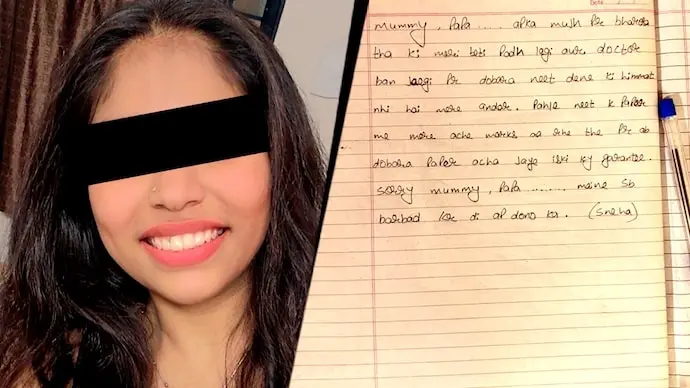 Date
mummy, papa ..... apka mujh pr bharosa
tha ki meri beti padh legi aur doctor
ban jaegi pr dobara neet dene ki himmat
nhi hai mere andar. Pahle neet k Paper
me mere ache marks aa rhe the pr ab
dobara Paper acha jaye iski ky garantee.
Sorry mummy, papa ......... maine sb
barbad kr di ap dono ka. (Sneha)